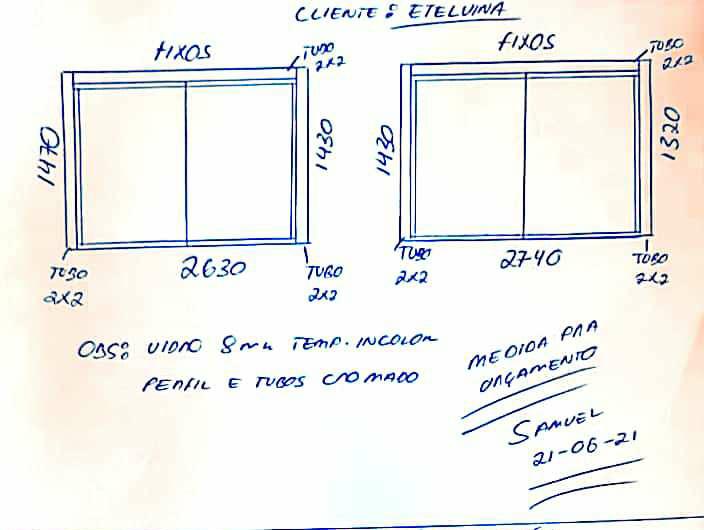 CLIENTE: ETELVINA
FIXOS
TUBO
2X2
1470
1430
TUBO
2X2
2630
TUBO
2X2
FIXOS
TUBO
2X2
1430
1320
TUBO
2X2
2740
TUBO
2X2
OBS: VIDRO 8mm TEMP. INCOLOR
PERFIL E TUBOS CROMADO
MEDIDA PRA
ORÇAMENTO
SAMUEL
21-06-21